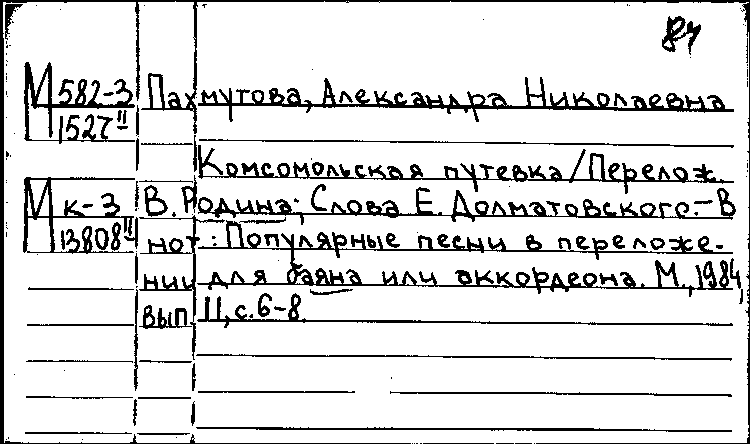 84
М 582-3 Пахмутова, Александра Николаевна
1527 II
Комсомольская путевка/Перелож.
М к-3 В. Родина; Слова Е. Долматовского.-В
13808 II нот.: Популярные песни в переложе-
нии для баяна или аккордеона. М., 1984,
вып. 11, с. 6-8.